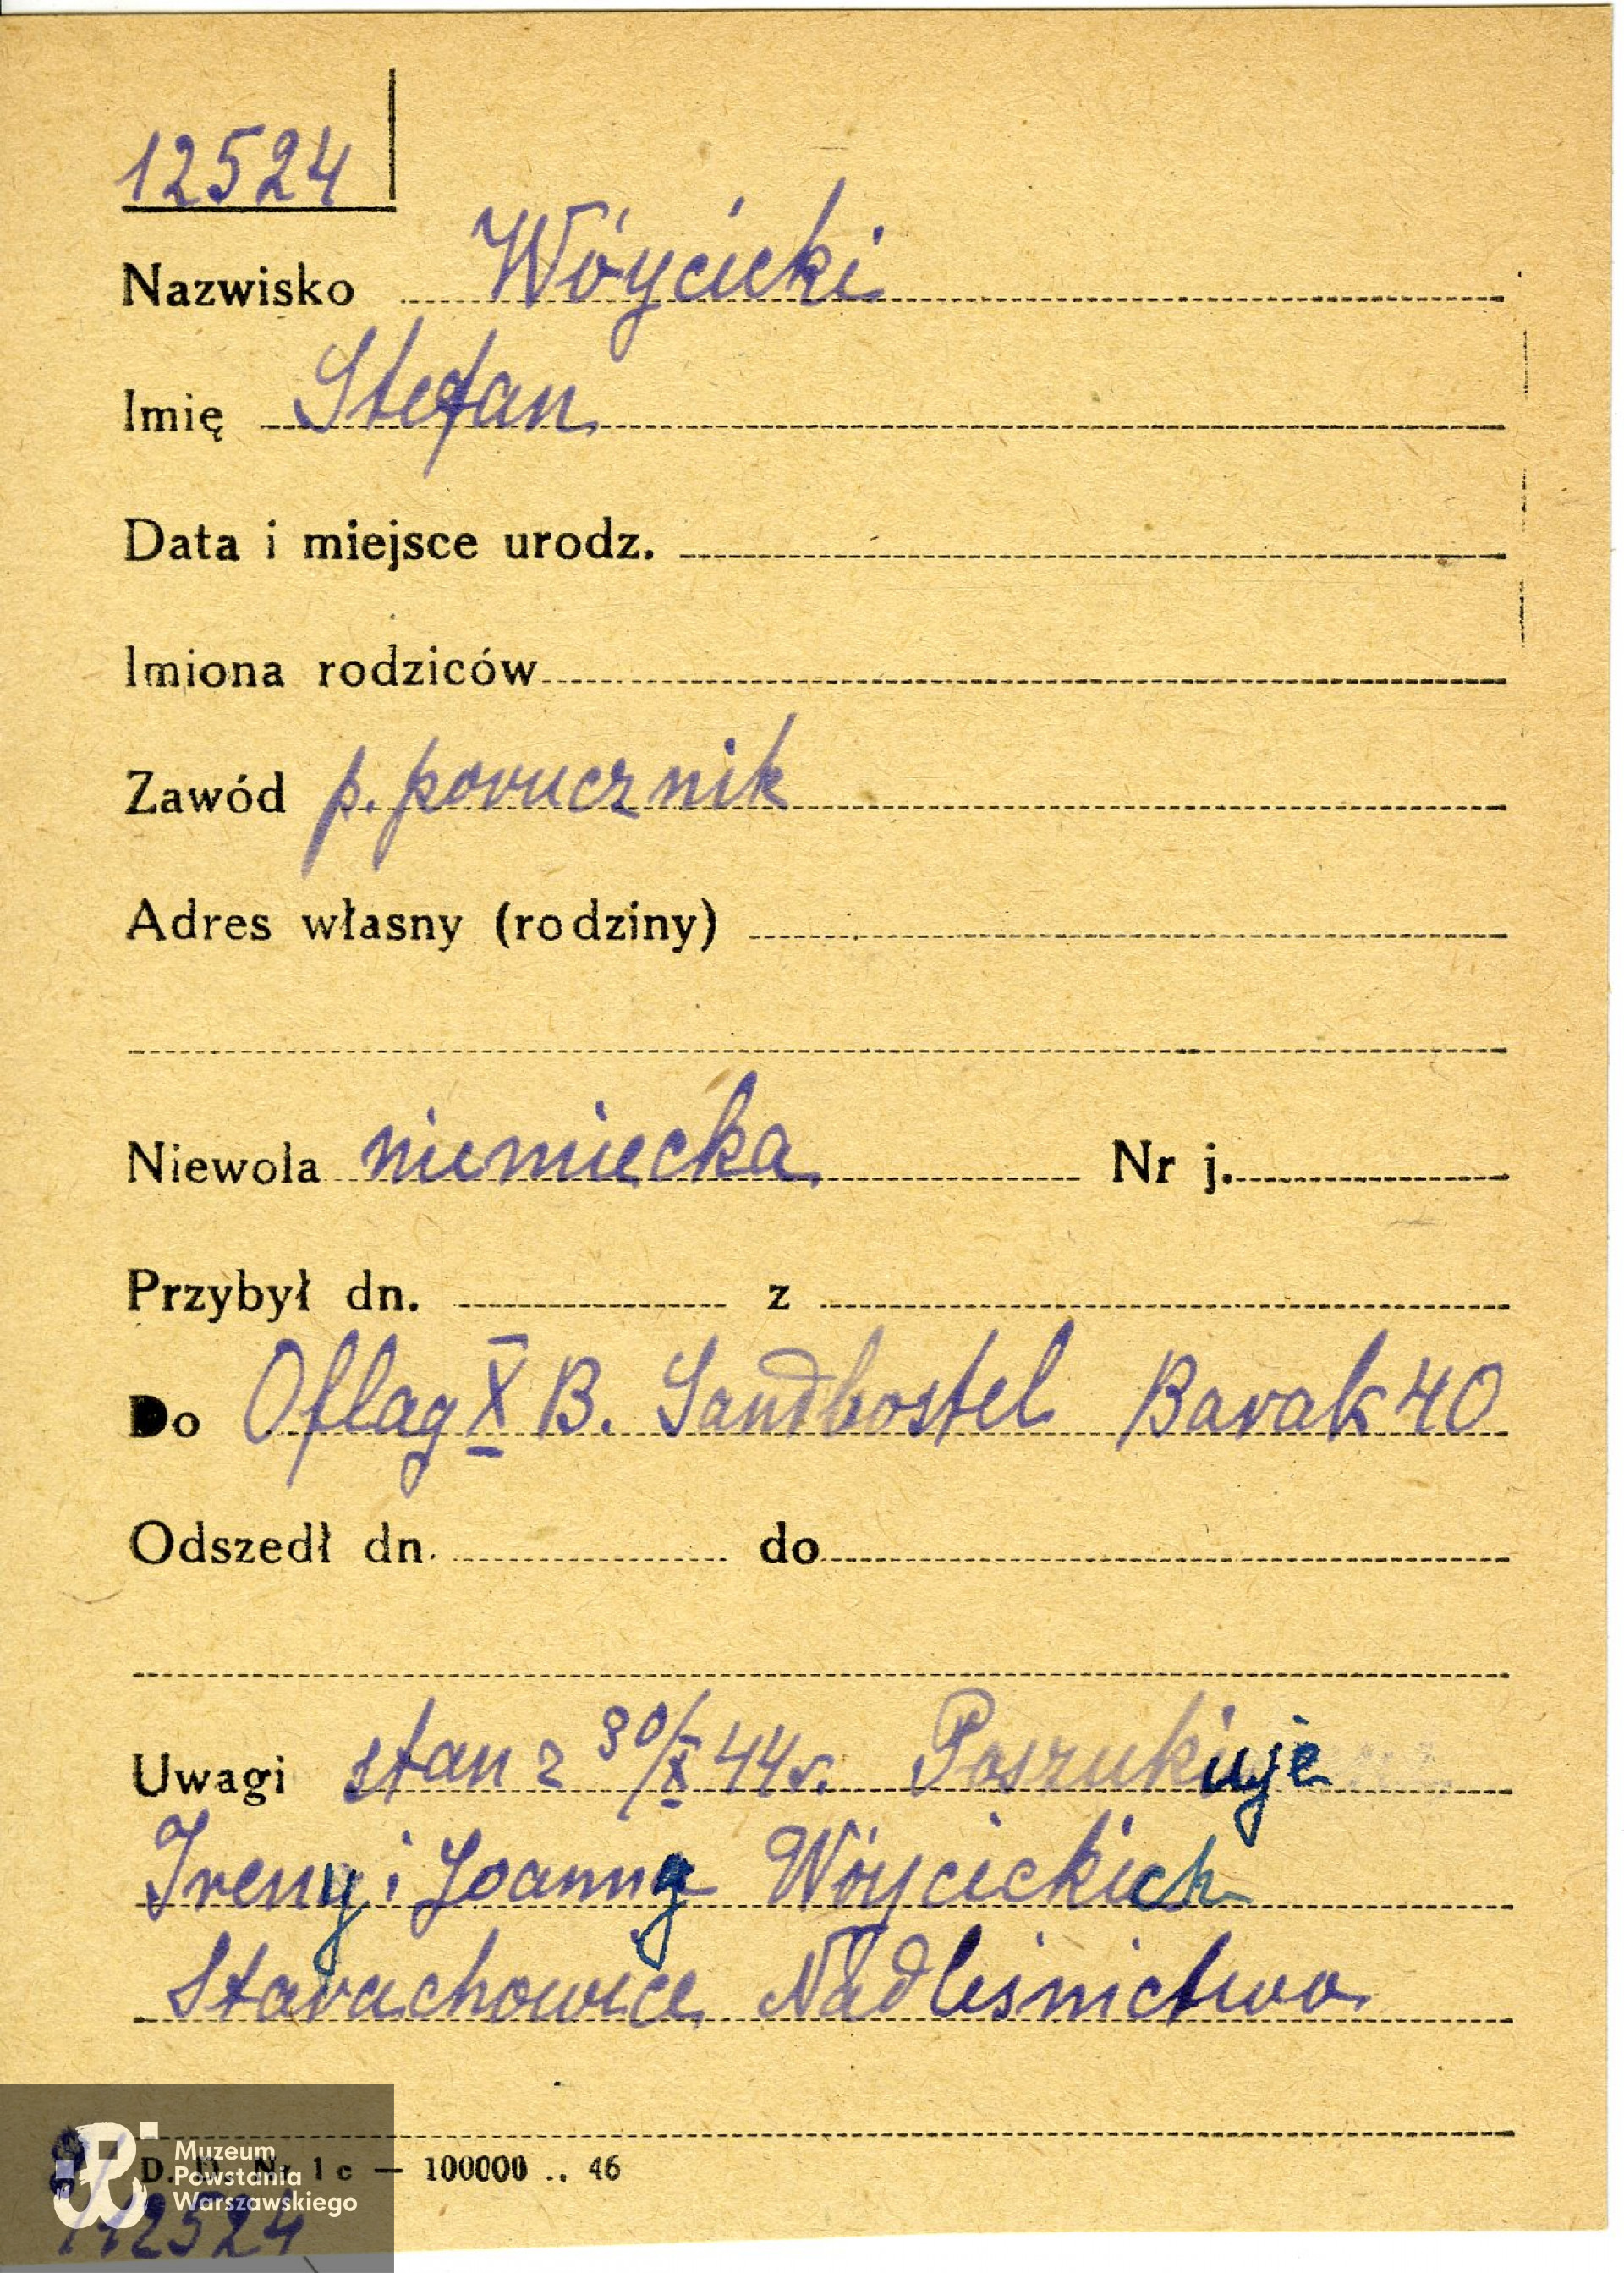 12524
Nazwisko Wóycicki
Imię Stefan
Data i miejsce urodz.
Imiona rodziców
Zawód p. porucznik
Adres własny (rodziny)
Niewola niemiecka Nr j.
Przybył dn. z
Do Oflag X B. Sandbostel Barak 40
Odszedł dn. do
Uwagi stan z 30/X 44r. Poszukuje
Ireny i Joanny Wóycickich
Starachowice Nadleśnictwo
D. D. Nr 1 c — 100000 .. 46
Muzeum
Powstania
Warszawskiego
12524